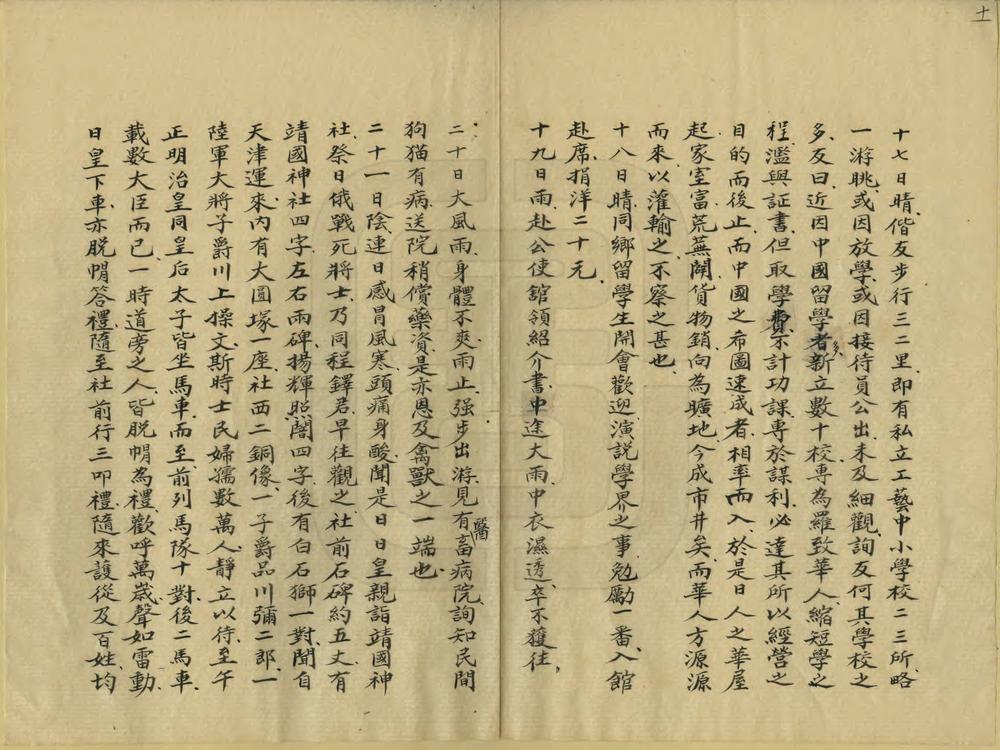 十
十七日晴偕友步行三二里即有私立工藝中小學校二三所略
一游眺或因放學或因接待員公出未及細觀詢友何其學校之
多友曰近因中國留學者多新立數十校專為羅致華人縮短學之
程濫與証書但取學費不計功課專於謀利必達其所以經營之
目的而後止而中國之希圖速成者相率而入於是日人之華屋
起家室富荒蕪闢貨物銷向為曠地今成市井矣而華人方源源
而來以灌輸之不察之甚也
十八日晴同鄉留學生開會歡迎演説學界之事勉勵一番入館
赴席捐洋二十元
十九日雨赴公使舘領紹介書中途大雨中衣濕透卒不獲往
二十日大風雨身體不爽雨止强步出游見有畜病醫院詢知民間
狗猫有病送院稍償藥資是亦恩及禽獸之一端也
二十一日陰連日感冒風寒頭痛身酸聞是日日皇親詣靖國神
社祭日俄戰死將士乃同程鐸君早往觀之社前石碑約五丈有
靖國神社四字左右兩碑揚輝照闇四字後有白石獅一對聞自
天津運來內有大圓塚一座社西二銅像一子爵品川彌二郎一
陸軍大將子爵川上操文斯時士民婦孺數萬人靜立以待至午
正明治皇同皇后太子皆坐馬車而至前列馬隊十對後二馬車
載數大臣而已一時道旁之人皆脱帽為禮歡呼萬歲聲如雷動
日皇下車亦脱帽答禮隨至社前行三叩禮隨來護從及百姓均